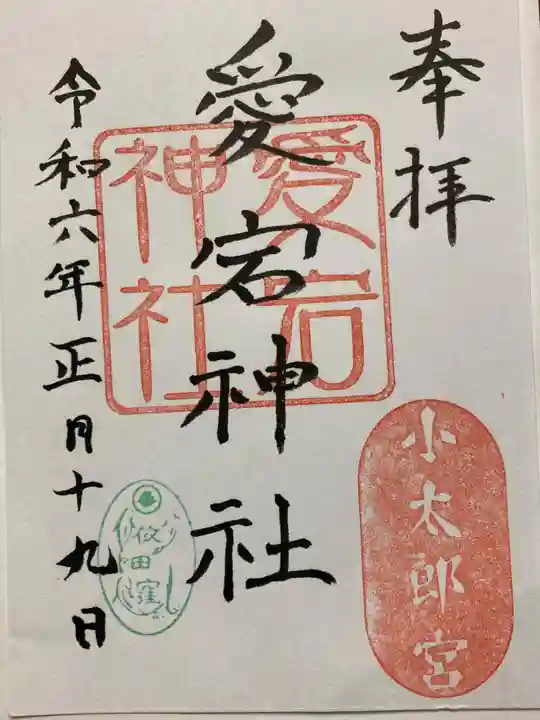 奉拝
愛宕神社
令和六年正月十九日
愛宕
神社
小太郎宮
田窪